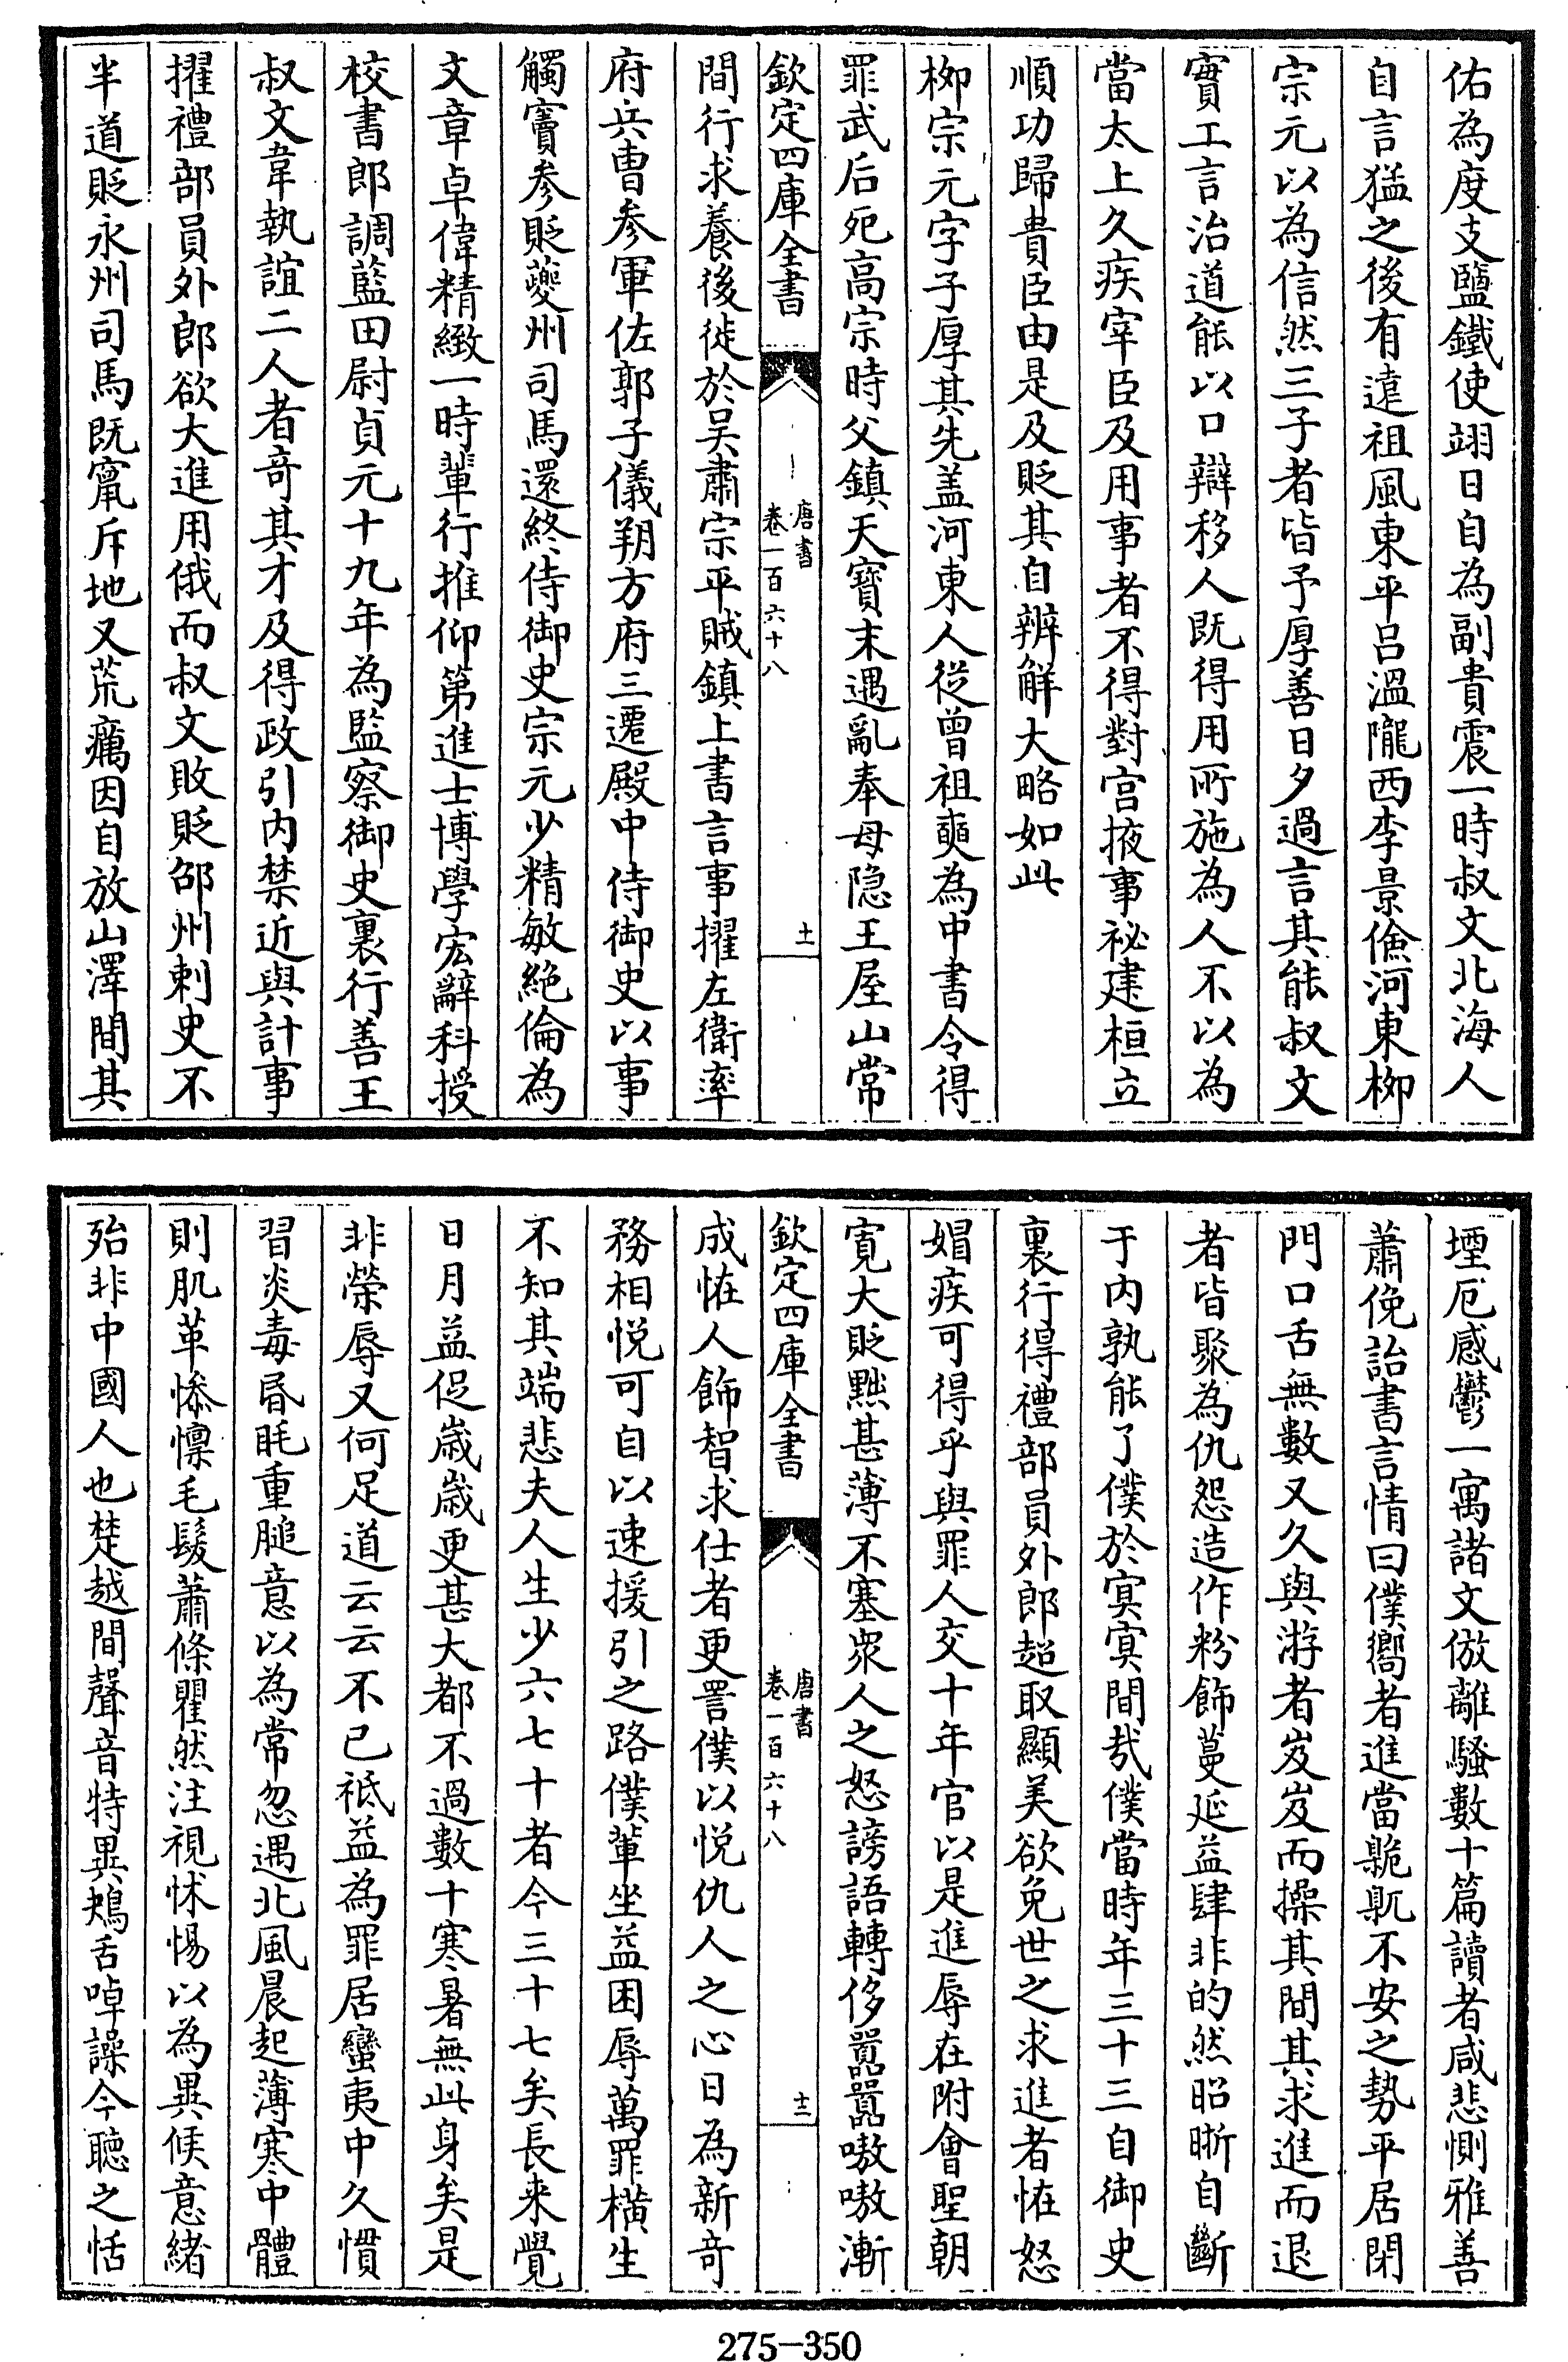 佑為度支鹽鐵使翊日自為副貴震一時叔文北海人
自言猛之後有遠祖風東平呂溫隴西李景儉河東栁
宗元以為信然三子者皆予厚善日夕過言其能叔文
實工言治道能以口辯移人既得用所施為人不以為
當太上久疾宰臣及用事者不得對宫掖事祕建桓立
順功歸貴臣由是及貶其自辨解大略如此
栁宗元字子厚其先盖河東人從曾祖奭為中書令得
罪武后死高宗時父鎮天寶末遇亂奉母隐王屋山常
欽定四庫全書
唐書
卷一百六十八
十一
間行求養後徙於吴肅宗平賊鎮上書言事擢左衛率
府兵曹参軍佐郭子儀朔方府三遷殿中侍御史以事
觸竇参貶夔州司馬還終侍御史宗元少精敏絶倫為
文章卓偉精緻一時輩行推仰第進士博學宏辭科授
校書郎調藍田尉貞元十九年為監察御史裏行善王
叔文韋執誼二人者竒其才及得政引内禁近與計事
擢禮部員外郎欲大進用俄而叔文敗貶邵州刺史不
半道貶永州司馬既竄斥地又荒癘因自放山澤間其
堙厄感鬱一寓諸文倣離騷數十篇讀者咸悲惻雅善
蕭俛詒書言情曰僕嚮者進當臲卼不安之勢平居閉
門口舌無數又久與游者岌岌而操其間其求進而退
者皆聚為仇怨造作粉飾蔓延益肆非的然昭晰自斷
于内孰能了僕於㝠㝠間哉僕當時年三十三自御史
裏行得禮部員外郎超取顯美欲免世之求進者怪怒
媢疾可得乎與罪人交十年官以是進辱在附會聖朝
寛大貶黜甚薄不塞衆人之怒謗語轉侈嚚嚚嗷嗷漸
欽定四庫全書
唐書
卷一百六十八
十二
成怪人飾智求仕者更詈僕以悦仇人之心日為新竒
務相悦可自以速援引之路僕輩坐益困辱萬罪横生
不知其端悲夫人生少六七十者今三十七矣長来覺
日月益促歳歳更甚大都不過數十寒暑無此身矣是
非榮辱又何足道云云不已祗益為罪居蠻夷中久慣
習炎毒昏眊重膇意以為常忽遇北風晨起薄寒中體
則肌革惨懔毛髮蕭條瞿然注視怵惕以為異候意緒
殆非中國人也楚越間聲音特異鴂舌啅譟今聽之恬
275-350